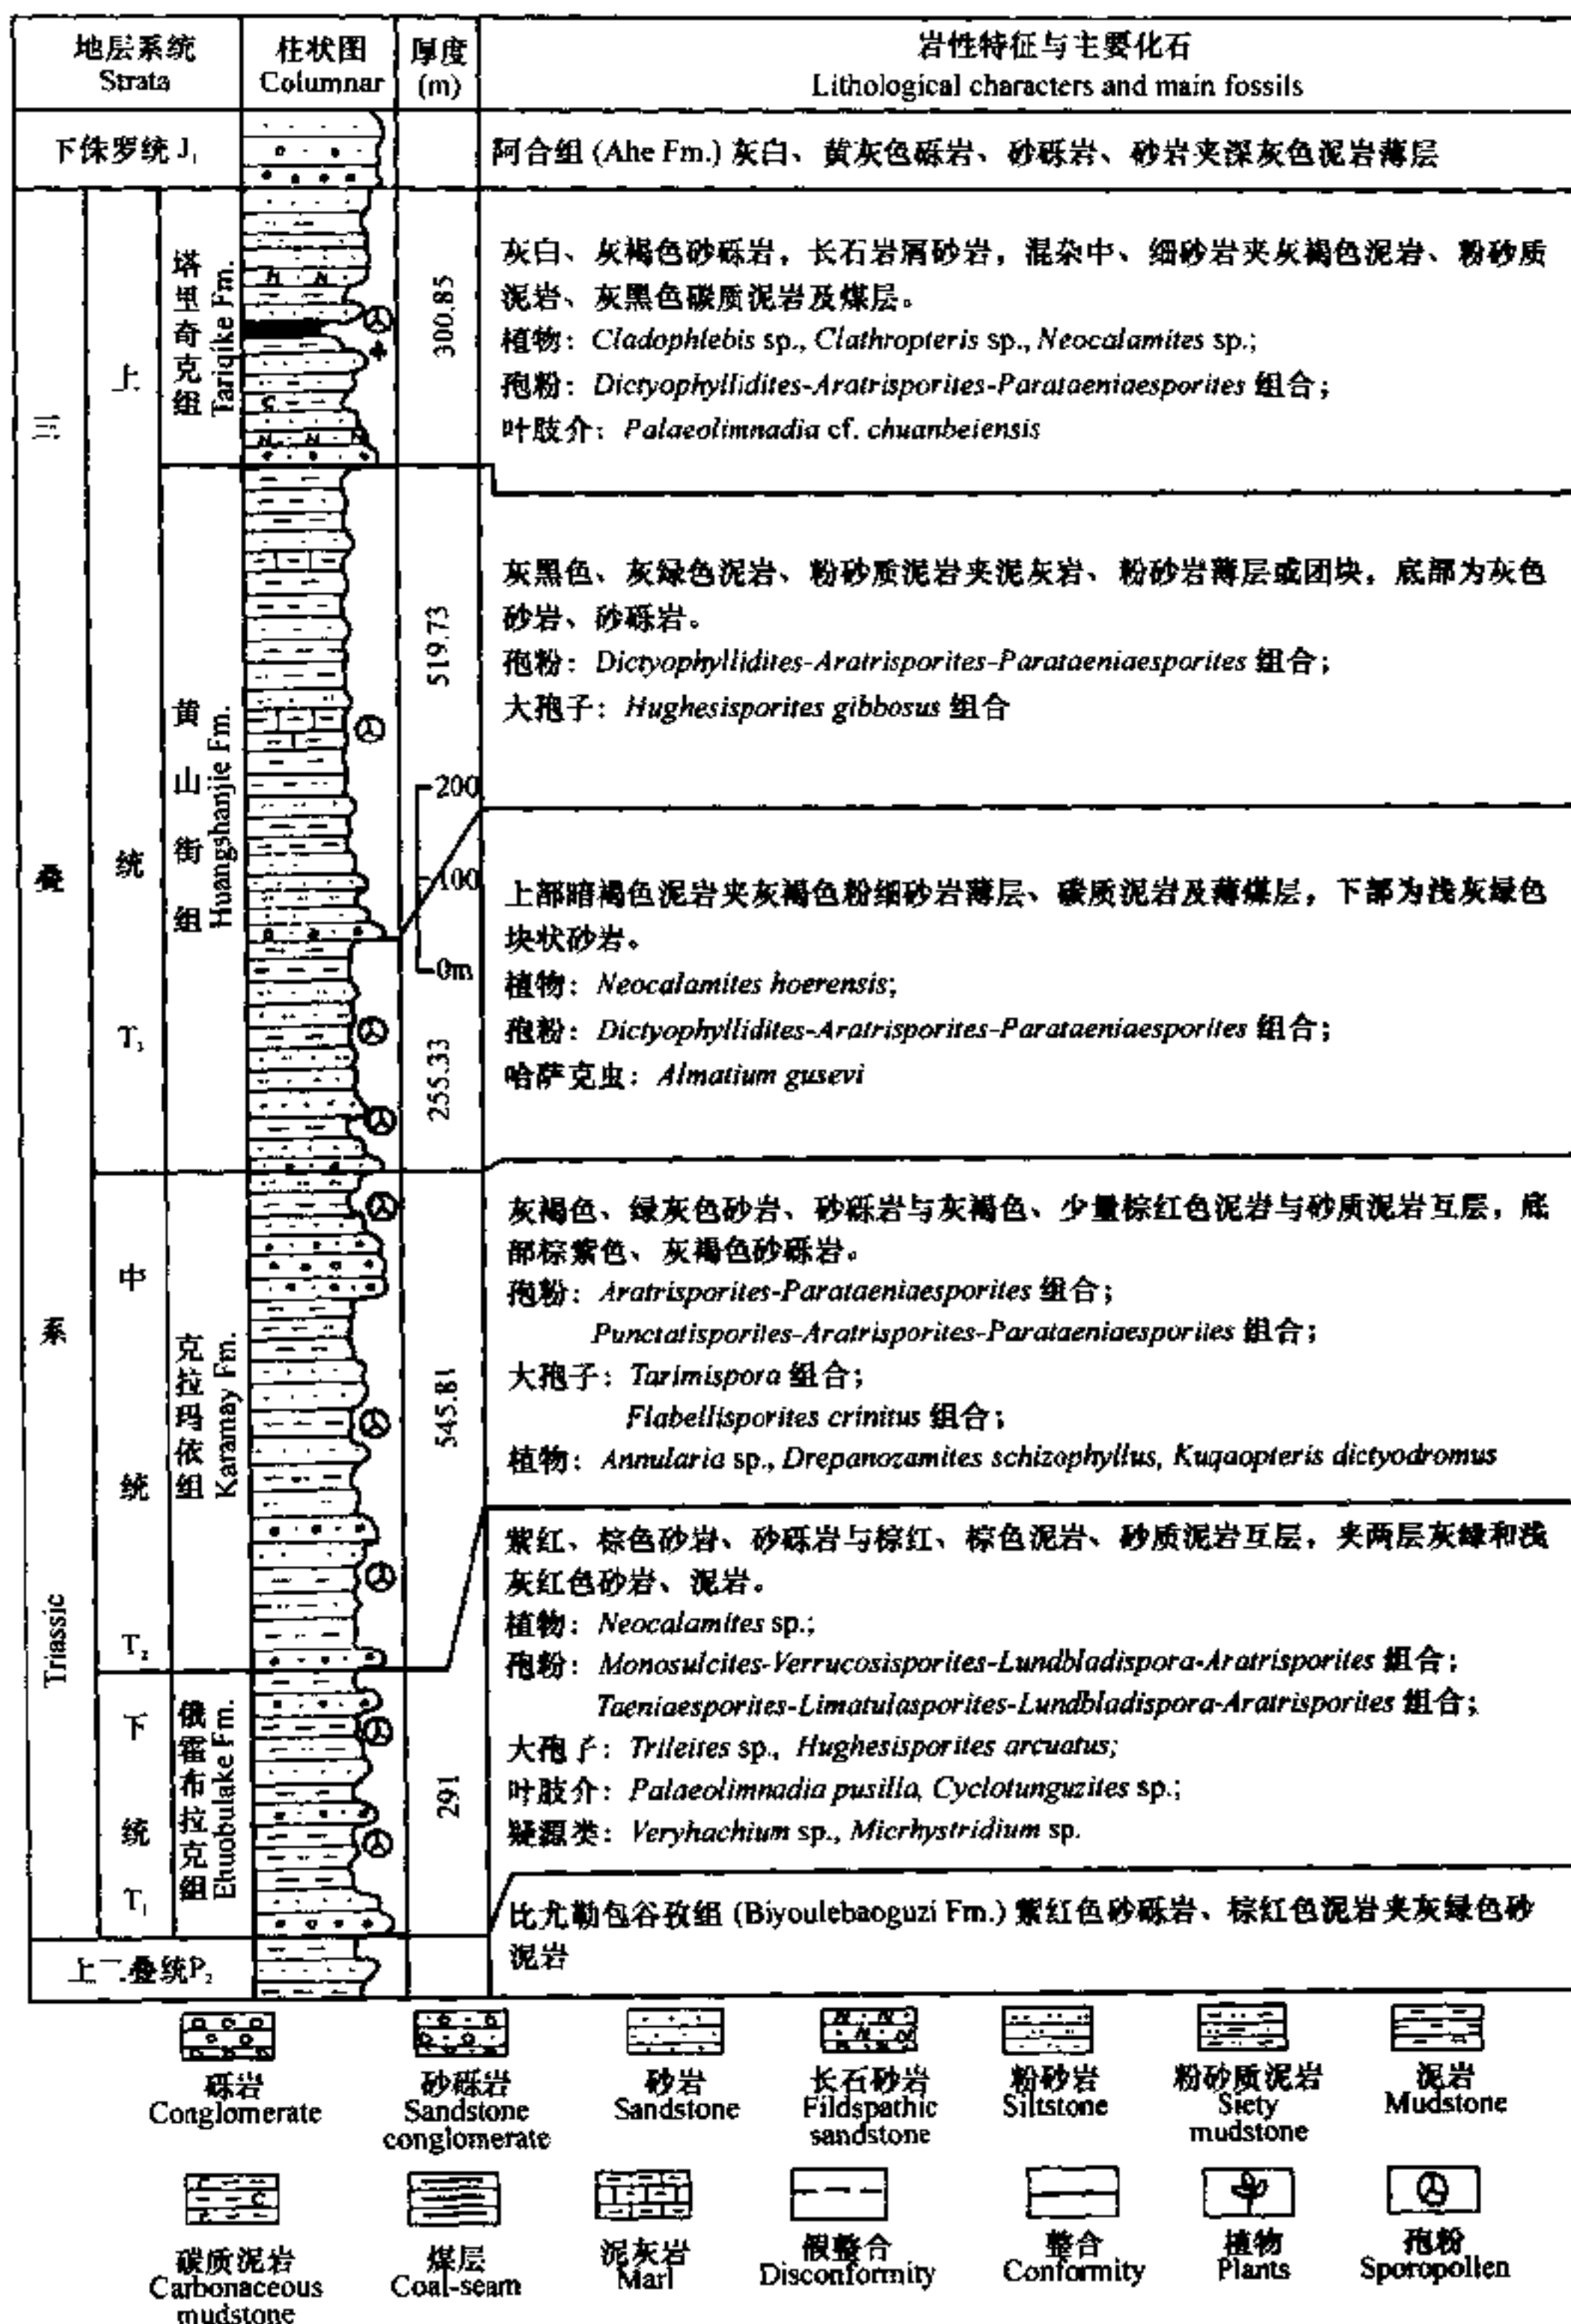 地层系统
Strata
柱状图
Columnar
厚度
(m)
岩性特征与主要化石
Lithological characters and main fossils
下侏罗统 J₁
阿合组 (Ahe Fm.) 灰白、黄灰色砾岩、砂砾岩、砂岩夹深灰色泥岩薄层
三
叠
系
Triassic
上
统
T₃
塔里奇克组
Tariqike Fm.
300.85
灰白、灰褐色砂砾岩，长石岩屑砂岩，混杂中、细砂岩夹灰褐色泥岩、粉砂质
泥岩、灰黑色碳质泥岩及煤层。
植物：Cladophlebis sp., Clathropteris sp., Neocalamites sp.;
孢粉：Dictyophyllidites-Aratrisporites-Parataeniaesporites 组合；
叶肢介：Palaeolimnadia cf. chuanbeiensis
黄山街组
Huangshanjie Fm.
519.73
灰黑色、灰绿色泥岩、粉砂质泥岩夹泥灰岩、粉砂岩薄层或团块，底部为灰色
砂岩、砂砾岩。
孢粉：Dictyophyllidites-Aratrisporites-Parataeniaesporites 组合；
大孢子：Hughesisporites gibbosus 组合
200
100
0m
255.33
上部暗褐色泥岩夹灰褐色粉细砂岩薄层、碳质泥岩及薄煤层，下部为浅灰绿色
块状砂岩。
植物：Neocalamites hoerensis;
孢粉：Dictyophyllidites-Aratrisporites-Parataeniaesporites 组合；
哈萨克虫：Almatium gusevi
中
统
T₂
克拉玛依组
Karamay Fm.
545.81
灰褐色、绿灰色砂岩、砂砾岩与灰褐色、少量棕红色泥岩与砂质泥岩互层，底
部棕紫色、灰褐色砂砾岩。
孢粉：Aratrisporites-Parataeniaesporites 组合；
Punctatisporites-Aratrisporites-Parataeniaesporites 组合；
大孢子：Tarimispora 组合；
Flabellisporites crinitus 组合；
植物：Annularia sp., Drepanozamites schizophyllus, Kuqaopteris dictyodromus
下
统
T₁
俄霍布拉克组
Ehuobulake Fm.
291
紫红、棕色砂岩、砂砾岩与棕红、棕色泥岩、砂质泥岩互层，夹两层灰绿和浅
灰红色砂岩、泥岩。
植物：Neocalamites sp.;
孢粉：Monosulcites-Verrucosisporites-Lundbladispora-Aratrisporites 组合；
Taeniaesporites-Limatulasporites-Lundbladispora-Aratrisporites 组合；
大孢子：Trileites sp., Hughesisporites arcuatus;
叶肢介：Palaeolimnadia pusilla, Cyclotunguzites sp.;
疑源类：Veryhachium sp., Micrhystridium sp.
上二叠统P₂
比尤勒包谷孜组 (Biyoulebaoguzi Fm.) 紫红色砂砾岩、棕红色泥岩夹灰绿色砂
泥岩
砾岩
Conglomerate
砂砾岩
Sandstone
conglomerate
砂岩
Sandstone
长石砂岩
Fildspathic
sandstone
粉砂岩
Siltstone
粉砂质泥岩
Siety
mudstone
泥岩
Mudstone
碳质泥岩
Carbonaceous
mudstone
煤层
Coal-seam
泥灰岩
Marl
假整合
Disconformity
整合
Conformity
植物
Plants
孢粉
Sporopollen